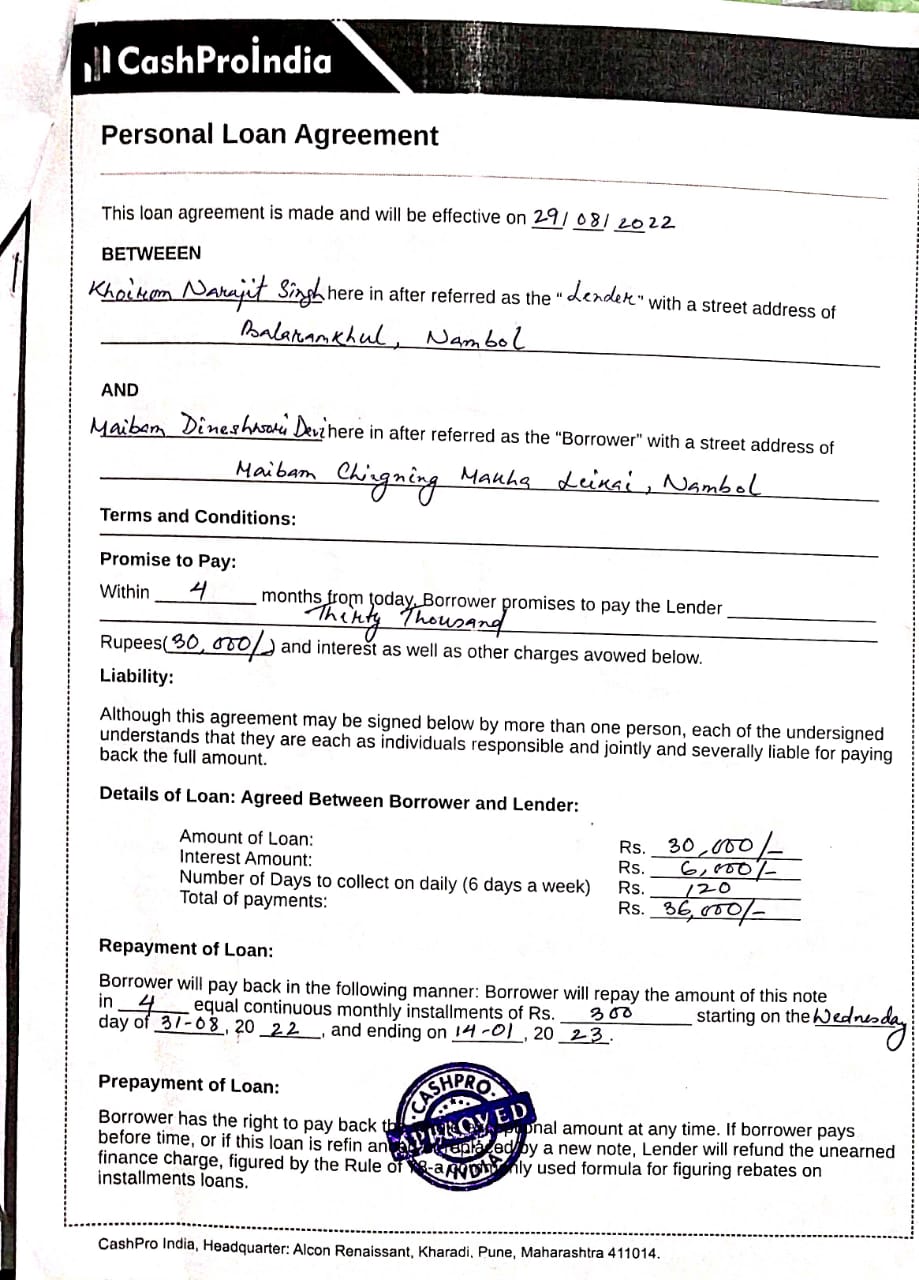 CashProİndia
Personal Loan Agreement
This loan agreement is made and will be effective on 29/ 08/ 2022
BETWEEEN
Khoirom Narajit Singh here in after referred as the "Lender" with a street address of
Balaramkhul, Nambol
AND
Maibam Dineshwori Devi here in after referred as the "Borrower" with a street address of
Maibam Chingning Makha Leikai, Nambol
Terms and Conditions:
Promise to Pay:
Within 4 months from today, Borrower promises to pay the Lender
Thirty Thousand
Rupees(30,000/-) and interest as well as other charges avowed below.
Liability:
Although this agreement may be signed below by more than one person, each of the undersigned
understands that they are each as individuals responsible and jointly and severally liable for paying
back the full amount.
Details of Loan: Agreed Between Borrower and Lender:
Amount of Loan: Rs. 30,000/-
Interest Amount: Rs. 6,000/-
Number of Days to collect on daily (6 days a week) Rs. 120
Total of payments: Rs. 36,000/-
Repayment of Loan:
Borrower will pay back in the following manner: Borrower will repay the amount of this note
in 4 equal continuous monthly installments of Rs. 300 starting on the Wednesday
day of 31-08, 20 22, and ending on 14-01, 20 23.
Prepayment of Loan:
CASHPRO
APPROVED
INDIA
Borrower has the right to pay back amount at any time. If borrower pays
before time, or if this loan is by a new note, Lender will refund the unearned
finance charge, figured by the Rule of used formula for figuring rebates on
installments loans.
CashPro India, Headquarter: Alcon Renaissant, Kharadi, Pune, Maharashtra 411014.